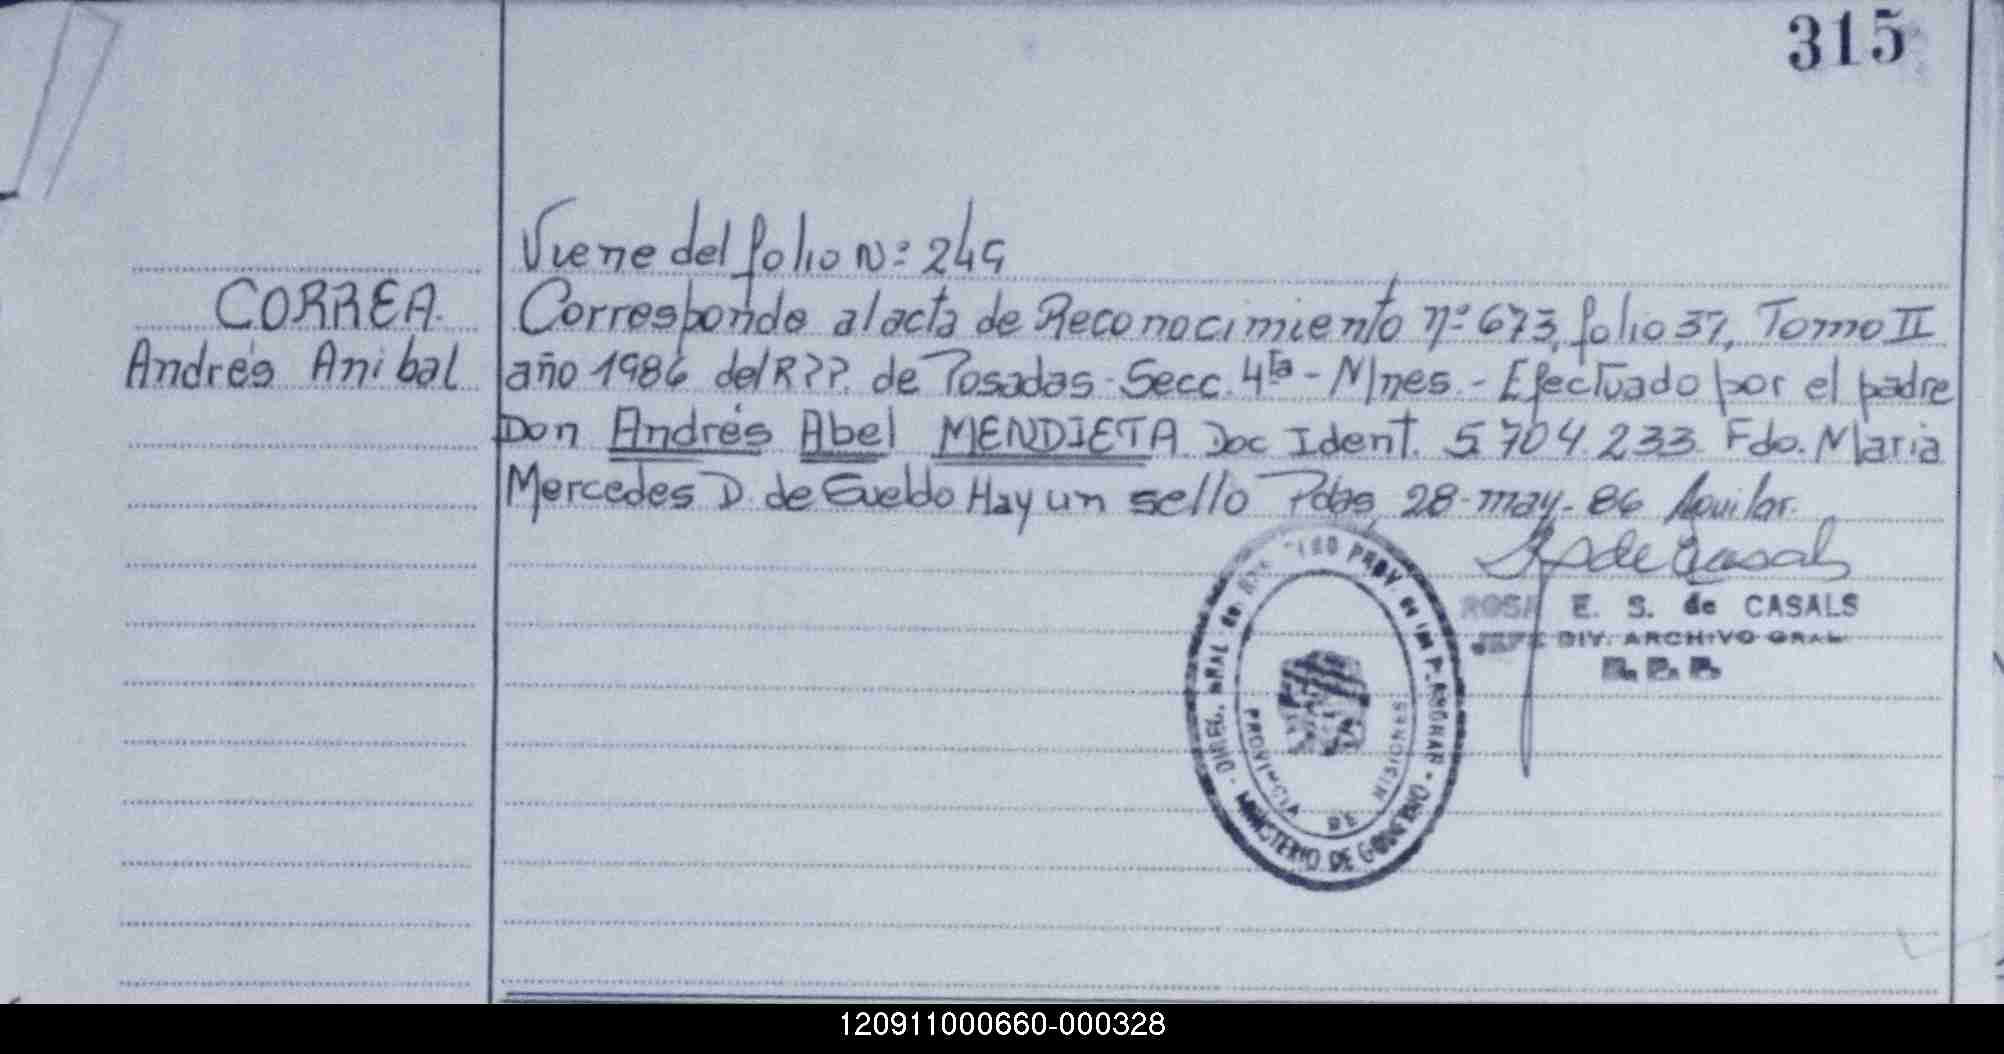 315
Viene del folio Nº 249
CORREA.
Andrés Anibal
Corresponde al acta de Reconocimiento nº 673, folio 37, Tomo II
año 1986 del R.P.P. de Posadas - Secc. 4ta - Mnes. - Efectuado por el padre
Don Andrés Abel MENDIETA Doc Ident. 5.704.233. Fdo. Maria
Mercedes D. de Hay un sello Pdas, 28-may-86 Aguilar.
de Casals
ROSA E. S. de CASALS
JEFE DIV. ARCHIVO GRAL
R. P. P.
DIREC. GRAL. del REGISTRO PROV. de las PERSONAS - MINISTERIO DE GOBIERNO -
PROVINCIA DE MISIONES
120911000660-000328